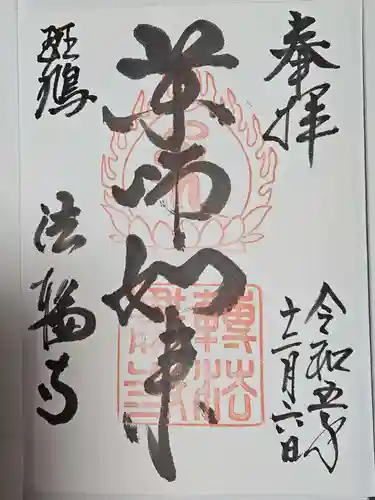 奉拝
令和五年
十二月六日
薬師如来
轉法
斑鳩
法輪寺